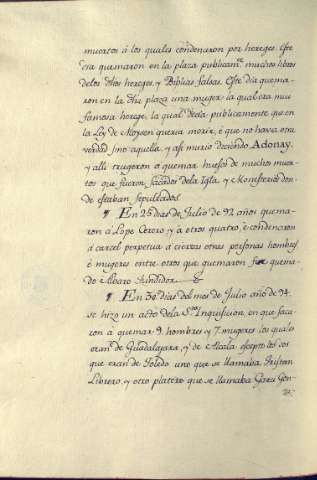 muertos á los quales condenaron por hereges. Este
dia quemaron en la plaza publicam.te muchos libros
de los dhos hereges, y Biblias falsas. Este dia quema-
ron en la dha plaza una muger la qual era muy
famosa herege, la qual decia publicamente que en
la Ley de Moysen queria morir, é que no havia otra
verdad sino aquella, y asi murió diciendo Adonay,
y alli trugeron á quemar huesos de muchos muer-
tos que fueron sacados de la Igla. y Monesterios don-
de estaban sepultados.
¶ En 25 dias de Julio de 92 años quema-
ron á Lope Cerero y á otros quatro, é condenaron
á carcel perpetua á ciertas otras personas hombres
é mugeres entre otros que quemaron fue quema-
do Albaro fundidor.
¶ En 30 dias del mes de Julio año de 94.
se hizo un acto de la S.ta Inquisicion, en que saca-
ron á quemar 9. hombres y 7. mugeres los quales
eran de Guadalajara, y de Alcalá escepto los dos
que eran de Toledo uno que se llamaba Tristan
Librero, y otro platero que se llamaba Garci Gon-